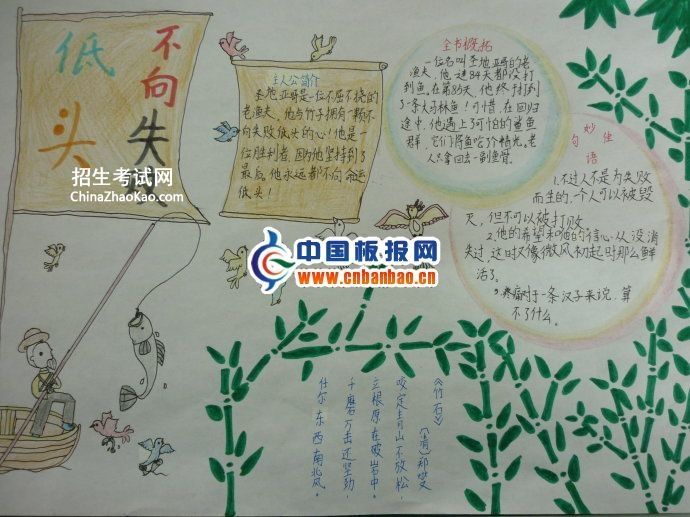 不向失败
低头
招生考试网
ChinaZhaoKao.com
主人公简介
圣地亚哥是一位不屈不挠的
老渔夫，他与竹子拥有一颗不
向失败低头的心！他是一
位胜利者，因为他坚持到了
最后，他永远都不向命运
低头！
全书概括
一位名叫圣地亚哥的老
渔夫，他连84天都没打
到鱼，在第85天，他终打到
了一条大马林鱼！可惜，在回归
途中，他遇上了可怕的鲨鱼
群，它们将鱼吃了个精光。老
人只拿回去一副鱼骨。
妙佳
句语
1.不过人不是为失败
而生的，个人可以被毁
灭，但不可以被打败
2.他的希望和他的信心从没消
失过，这时又像微风初起时那么鲜
活了。
3.疼痛对于一条汉子来说，算
不了什么。
中国板报网
www.cnbanbao.cn
《竹石》
（清）郑燮
咬定青山不放松，
立根原在破岩中。
千磨万击还坚劲，
任尔东西南北风。